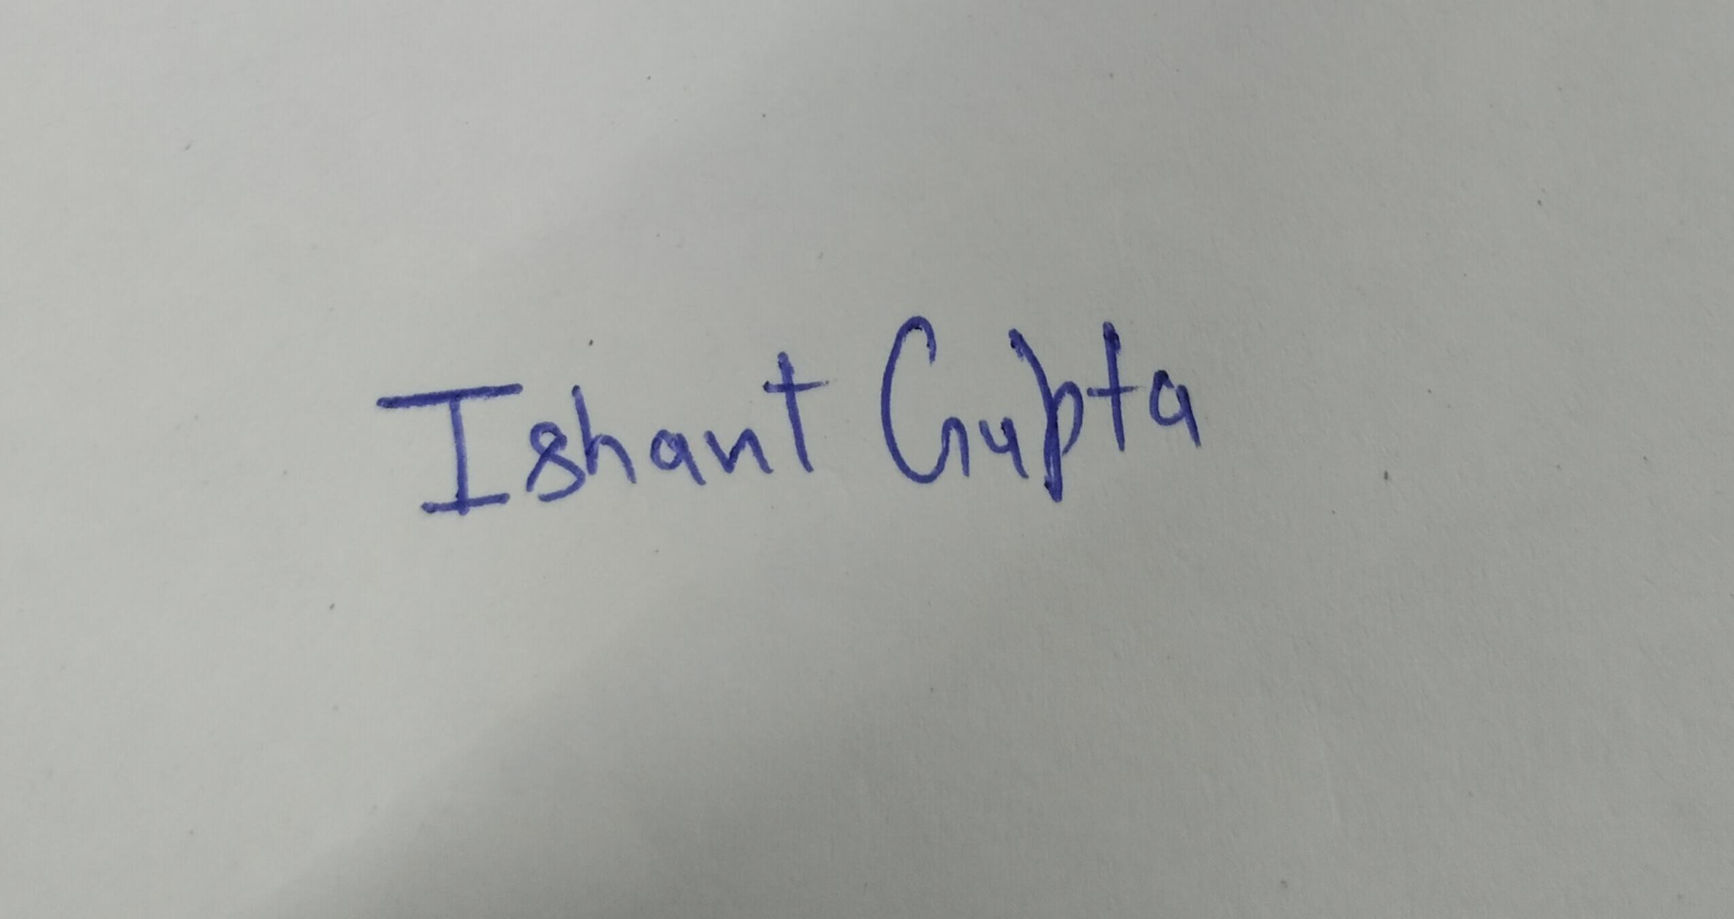 Ishant Gupta